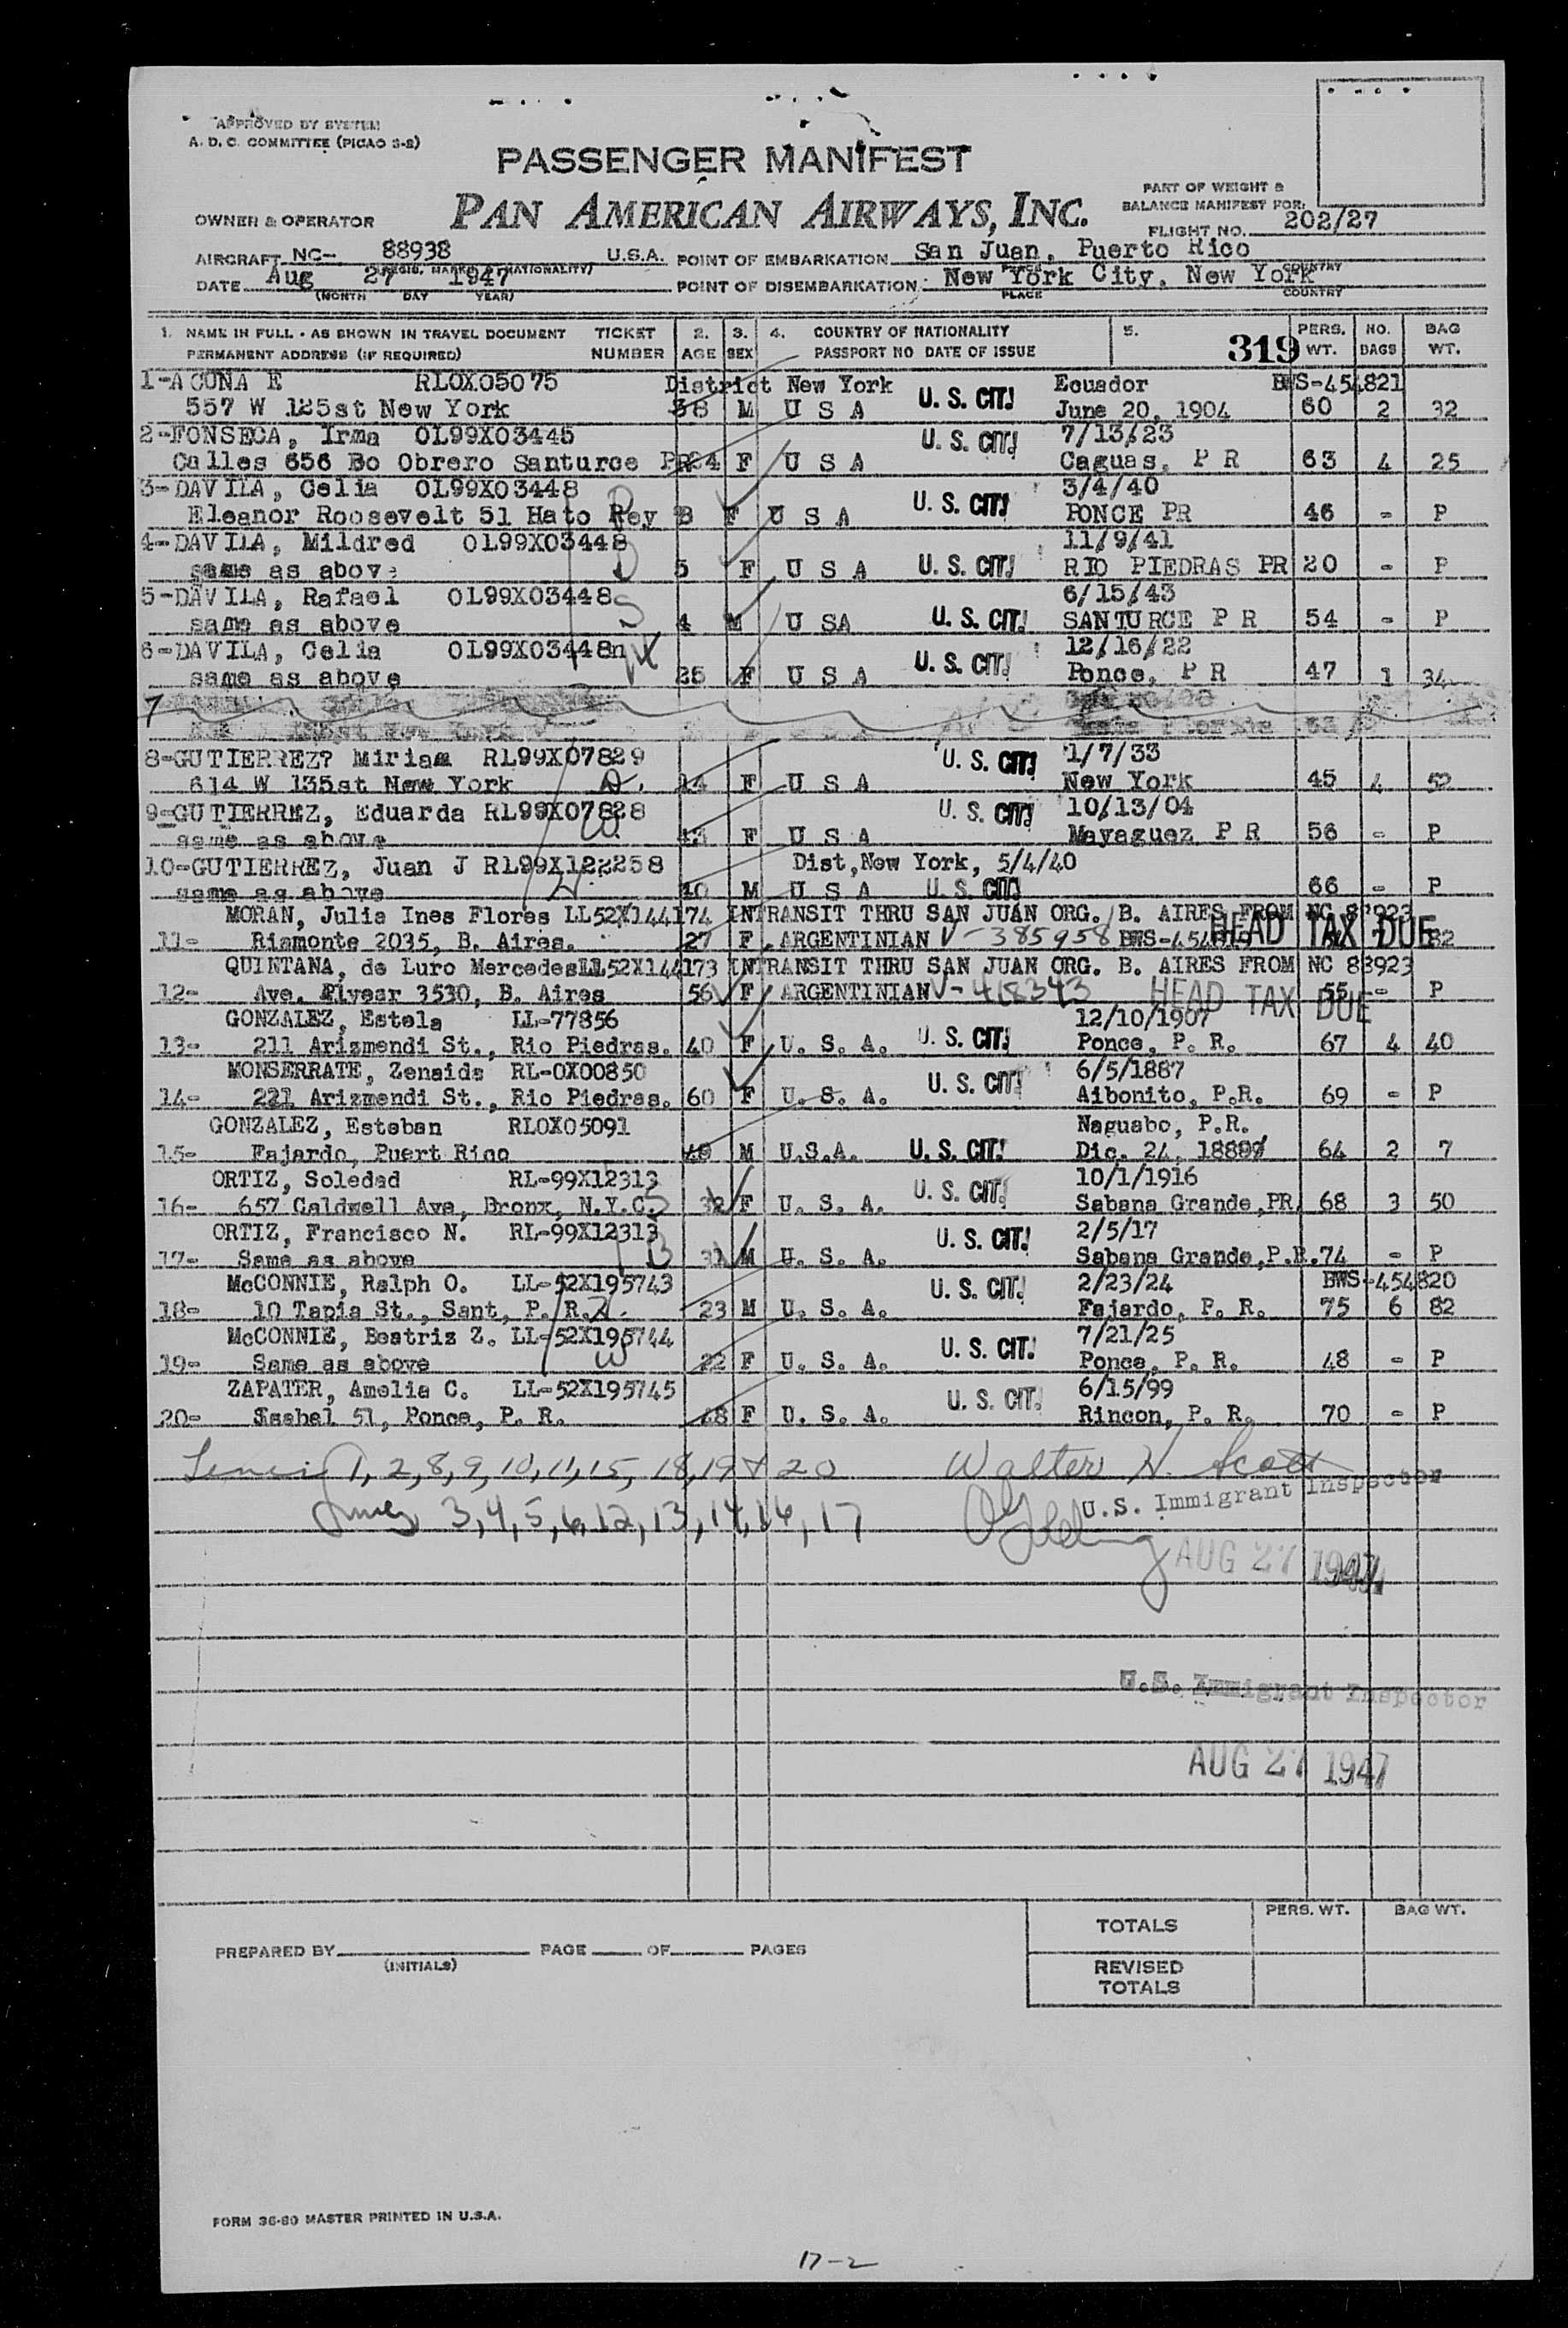 APPROVED BY SYSTEM
A. D. C. COMMITTEE (PICAO 3-2)
PASSENGER MANIFEST
PAN AMERICAN AIRWAYS, INC.
OWNER & OPERATOR
PART OF WEIGHT &
BALANCE MANIFEST FOR:
FLIGHT NO. 202/27
AIRCRAFT NC- 88938 U.S.A. POINT OF EMBARKATION San Juan, Puerto Rico
DATE Aug 27 1947 POINT OF DISEMBARKATION New York City, New York
(MONTH DAY YEAR) PLACE COUNTRY
1. NAME IN FULL - AS SHOWN IN TRAVEL DOCUMENT TICKET 2. 3. 4. COUNTRY OF NATIONALITY 5. PERS. NO. BAG
PERMANENT ADDRESS (IF REQUIRED) NUMBER AGE SEX PASSPORT NO DATE OF ISSUE 319 WT. BAGS WT.
1-ACUNA E RLOX05075 District New York Ecuador BWS-454821
557 W 125st New York 38 M U S A U. S. CIT. June 20, 1904 60 2 32
2-FONSECA, Irma OL99X03445 U. S. CIT. 7/13/23
Calles 656 Bo Obrero Santurce PR 24 F U S A Caguas, P R 63 4 25
3-DAVILA, Celia OL99X03448 U. S. CIT. 3/4/40
Eleanor Roosevelt 51 Hato Rey 8 F U S A PONCE PR 46 - P
4-DAVILA, Mildred OL99X03448 11/9/41
same as above 5 F U S A U. S. CIT. RIO PIEDRAS PR 20 - P
5-DAVILA, Rafael OL99X03448 6/15/43
same as above 4 M U SA U. S. CIT. SANTURCE P R 54 - P
6-DAVILA, Celia OL99X03448 U. S. CIT. 12/16/22
same as above 25 F U S A Ponce, P R 47 1 34
7
8-GUTIERREZ? Miriam RL99X07829 U. S. CIT. 1/7/33
614 W 135st New York 14 F U S A New York 45 4 52
9-GUTIERREZ, Eduarda RL99X07828 U. S. CIT. 10/13/04
same as above F U S A Mayaguez P R 56 - P
10-GUTIERREZ, Juan J RL99X122258 Dist,New York, 5/4/40
same as above 40 M U S A U. S. CIT. 66 - P
MORAN, Julia Ines Flores LL52X144174 INTRANSIT THRU SAN JUAN ORG. B. AIRES FROM NC 88923
11- Riamonte 2035, B. Aires. 27 F ARGENTINIAN V-385958 HEAD TAX DUE 82
QUINTANA, de Luro Mercedes LL52X144173 INTRANSIT THRU SAN JUAN ORG. B. AIRES FROM NC 88923
12- Ave. Elvear 3530, B. Aires 56 F ARGENTINIAN V-418343 HEAD TAX DUE 55 - P
GONZALEZ, Estela LL-77856 12/10/1907
13- 211 Arizmendi St., Rio Piedras. 40 F U. S. A. U. S. CIT. Ponce, P. R. 67 4 40
MONSERRATE, Zenaida RL-0X00850 U. S. CIT. 6/5/1887
14- 221 Arizmendi St., Rio Piedras. 60 F U. S. A. Aibonito, P.R. 69 - P
GONZALEZ, Esteban RLOX05091 Naguabo, P.R.
15- Fajardo, Puert Rico M U.S.A. U. S. CIT. Dic. 24, 64 2 7
ORTIZ, Soledad RL-99X12313 U. S. CIT. 10/1/1916
16- 657 Caldwell Ave, Bronx, N.Y.C. 32 F U. S. A. Sabana Grande,PR. 68 3 50
ORTIZ, Francisco N. RL-99X12313 U. S. CIT. 2/5/17
17- Same as above 31 M U. S. A. Sabana Grande,P.R. 74 - P
McCONNIE, Ralph O. LL-52X195743 U. S. CIT. 2/23/24 BWS-454820
18- 10 Tapia St., Sant, P. R. 23 M U. S. A. Fajardo, P. R. 75 6 82
McCONNIE, Beatriz Z. LL-52X195744 U. S. CIT. 7/21/25
19- Same as above 22 F U. S. A. Ponce, P. R. 48 - P
ZAPATER, Amelia C. LL-52X195745 U. S. CIT. 6/15/99
20- Isabel 51, Ponce, P. R. 48 F U. S. A. Rincon, P. R. 70 - P
1, 2, 8, 9, 10, 11, 15, 18, 19 & 20 Walter H. Scott
3, 4, 5, 6, 12, 13, 14, 16, 17 U.S. Immigrant Inspector
AUG 27 1947
U.S. Immigrant Inspector
AUG 27 1947
PERS. WT. BAG WT.
TOTALS
PREPARED BY (INITIALS) PAGE OF PAGES
REVISED
TOTALS
FORM 36-80 MASTER PRINTED IN U.S.A.
17-2